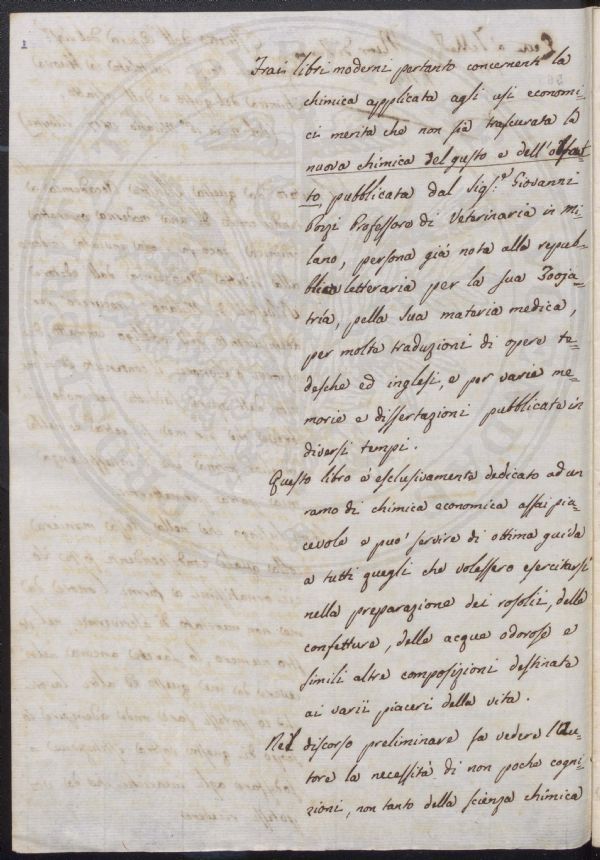 1
Frai libri moderni pertanto concernenti la
chimica applicata agli usi economi=
ci merita che non sia trascurata la
nuova chimica del gusto e dell'olfat
to pubblicata dal Sig.r Giovanni
Pozzi Professore di Veterinaria in mi=
lano, persona già nota alla repub=
blica letteraria per la sua Zooja=
tria, pella sua materia medica,
per molte traduzioni di opere te=
desche ed inglesi, e per varie me=
morie e dissertazioni pubblicate in
diversi tempi.
Questo libro è esclusivamente dedicato ad un
ramo di chimica economica assai pia=
cevole e può servire di ottima guida
a tutti quegli che volessero esercitarsi
nella preparazione dei rosolii, delle
confetture, delle acque odorose e
simili altre composizioni destinate
ai varii piaceri della vita.
Nel discorso preliminare fa vedere l'Au=
tore la necessità di non poche cogni=
zioni, non tanto della scienza chimica